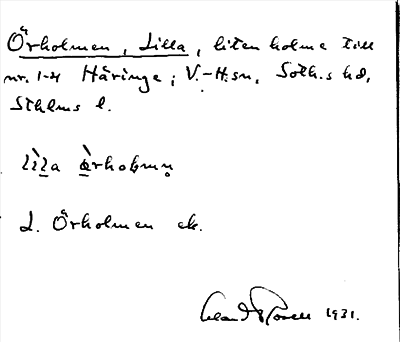 Örholmen, Lilla, liten holme till
nr. 1-4 Häringe; V.-H. sn, Soth.s hd,
Sthlms l.
lìla ǿrhoḷmn̥
L. Örholmen ek.
1931.